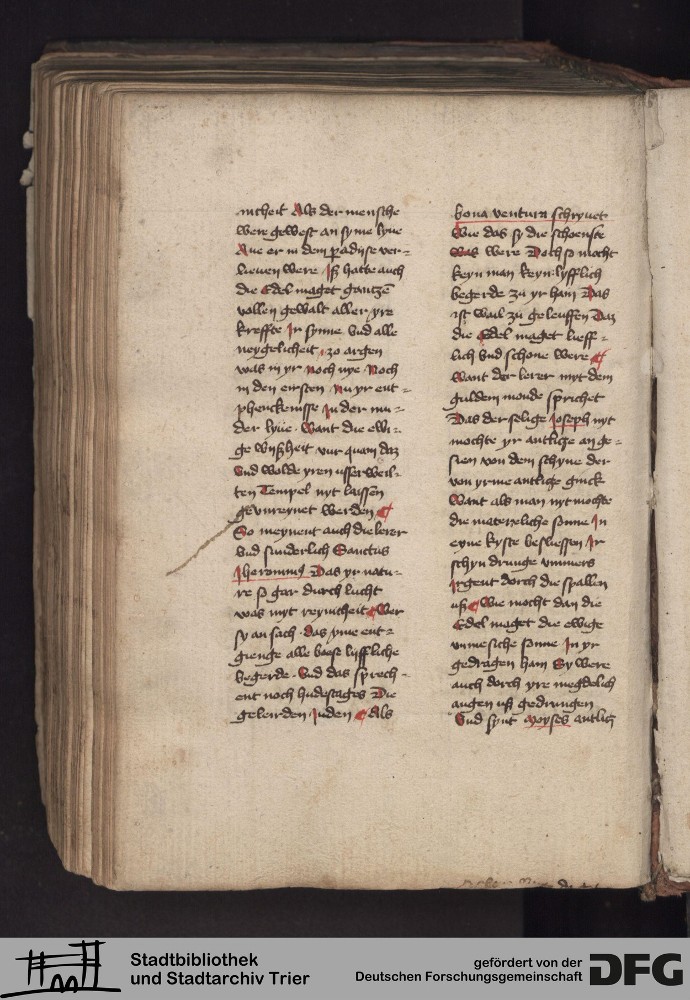 incheit Als der mensche
were gewest an syme lyue
Aue er in dem paradyse ver-
lieuen were Jß hatte auch
die Edel maget gantzē
vollen gewalt aller yre
kreffte Jr synne vnd alle
neygelicheit zo argen
was in yr noch nye Noch
in den eirsten Nu yr ent-
phenckenisse Jn der mu-
der lyue. Want die ewi-
ge wijßheit vur quam daz
Vnd wolde yren vsserweil-
ten Tempel nyt laissen
geunreynet werden
So meynent auch die lerer
Vnd sunderlich Sanctus
Jheronimus Das yr natu-
re so gar durch lucht
was myt reynicheit Wer
sy an sach. das yme ent-
gienge alle boese lyffliche
begerde. Vnd das sprech-
ent noch hudestages Die
geleirden Juden Als
bona ventura schryuet
Wie das sy die schoenste
Was were Doch so mocht
keyn man keyn lyfflich
begerde zu yr han Das
ist wail zu geleuffen Daz
die Edel maget lieff-
lich vnd schone were
Want der lerer myt dem
gulden monde sprichet
Das der selige Joseph nyt
mochte yr antlitze an ge-
sien von dem schyne der
von yrme antlitze ginck
Want als man nyt mochte
die matereliche sonne Jn
eyne kyste besliessen Jr
schyn drunge vmmers
Jrgent dorch die spallen
uß Wie mocht dan die
Edel maget die ewige
vnmesiche sonne Jn yr
gedragen han Sy were
auch dorch yre megdelich
augen uß gedrungen
Vnd synt Moyses antlitz
Stadtbibliothek
und Stadtarchiv Trier
gefördert von der
Deutschen Forschungsgemeinschaft
DFG